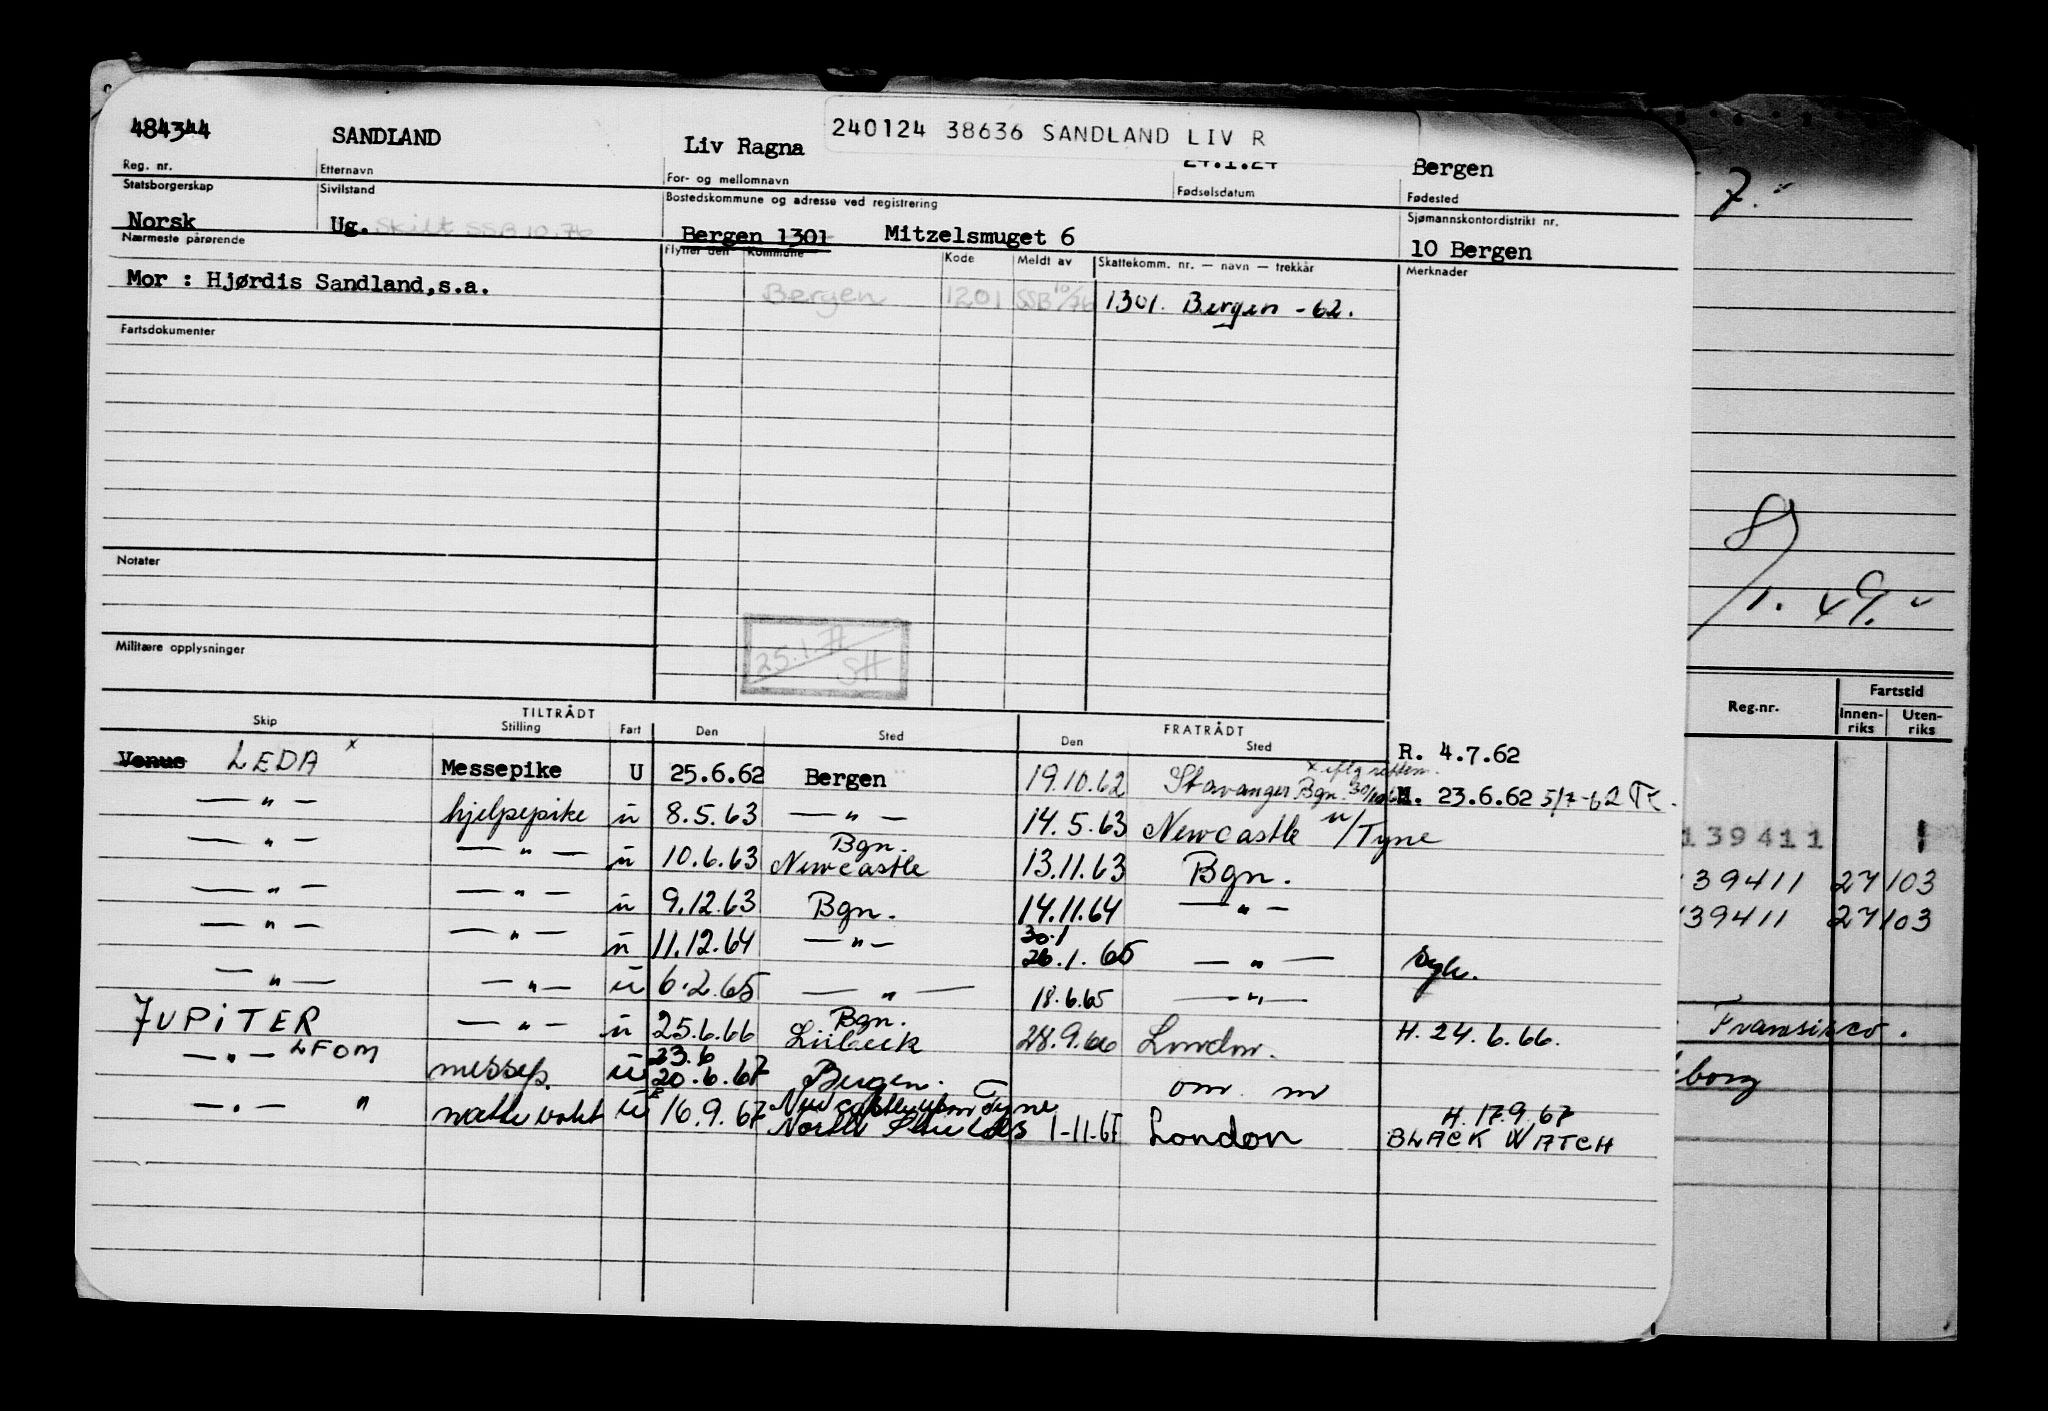 484344 SANDLAND Liv Ragna 240124 38636 SANDLAND LIV R
24.1.24 Bergen
Reg. nr. Etternavn For- og mellomnavn Fødselsdatum Fødested
Statsborgerskap Sivilstand Bostedskommune og adresse ved registrering Sjømannskontordistrikt nr.
Norsk Ug. Skilt SSB 10.76 Bergen 1301 Mitzelsmuget 6 10 Bergen
Nærmeste pårørende Flyttet den Kommune Kode Meldt av Skattekomm. nr. — navn — trekkår Merknader
Mor : Hjørdis Sandland,s.a. Bergen 1201 SSB 10/76 1301. Bergen - 62.
Fartsdokumenter
Notater
25.1.77 SH
Militære opplysninger
TILTRÅDT FRATRÅDT
Skip Stilling Fart Den Sted Den Sted
R. 4.7.62
Venus LEDA x Messepike U 25.6.62 Bergen 19.10.62 Stavanger
M. 23.6.62 5/7-62
— " — hjelpepike u 8.5.63 — " — 14.5.63 Newcastle u/Tyne
— " — — " — u 10.6.63 Bgn. Newcastle 13.11.63 Bgn.
— " — — " — u 9.12.63 Bgn. 14.11.64 — " —
— " — — " — u 11.12.64 — " — 30.1 26.1.65 — " — syk.
— " — — " — u 6.2.65 — " — 18.6.65 — " —
JUPITER — " — u 25.6.66 Bgn. Lübeck 28.9.66 London. H. 24.6.66.
— " — LFOM messep. u 23.6 20.6.67 Bergen. om. m
— " — " u 16.9.67 Newcastle upon Tyne North Shields 1-11-67 London H. 17.9.67
BLACK WATCH
7."
8/1.49.
Reg.nr. Fartstid
Innen-riks Uten-riks
139411 1
139411 27 103
139411 27 103
Fransisco.
borg